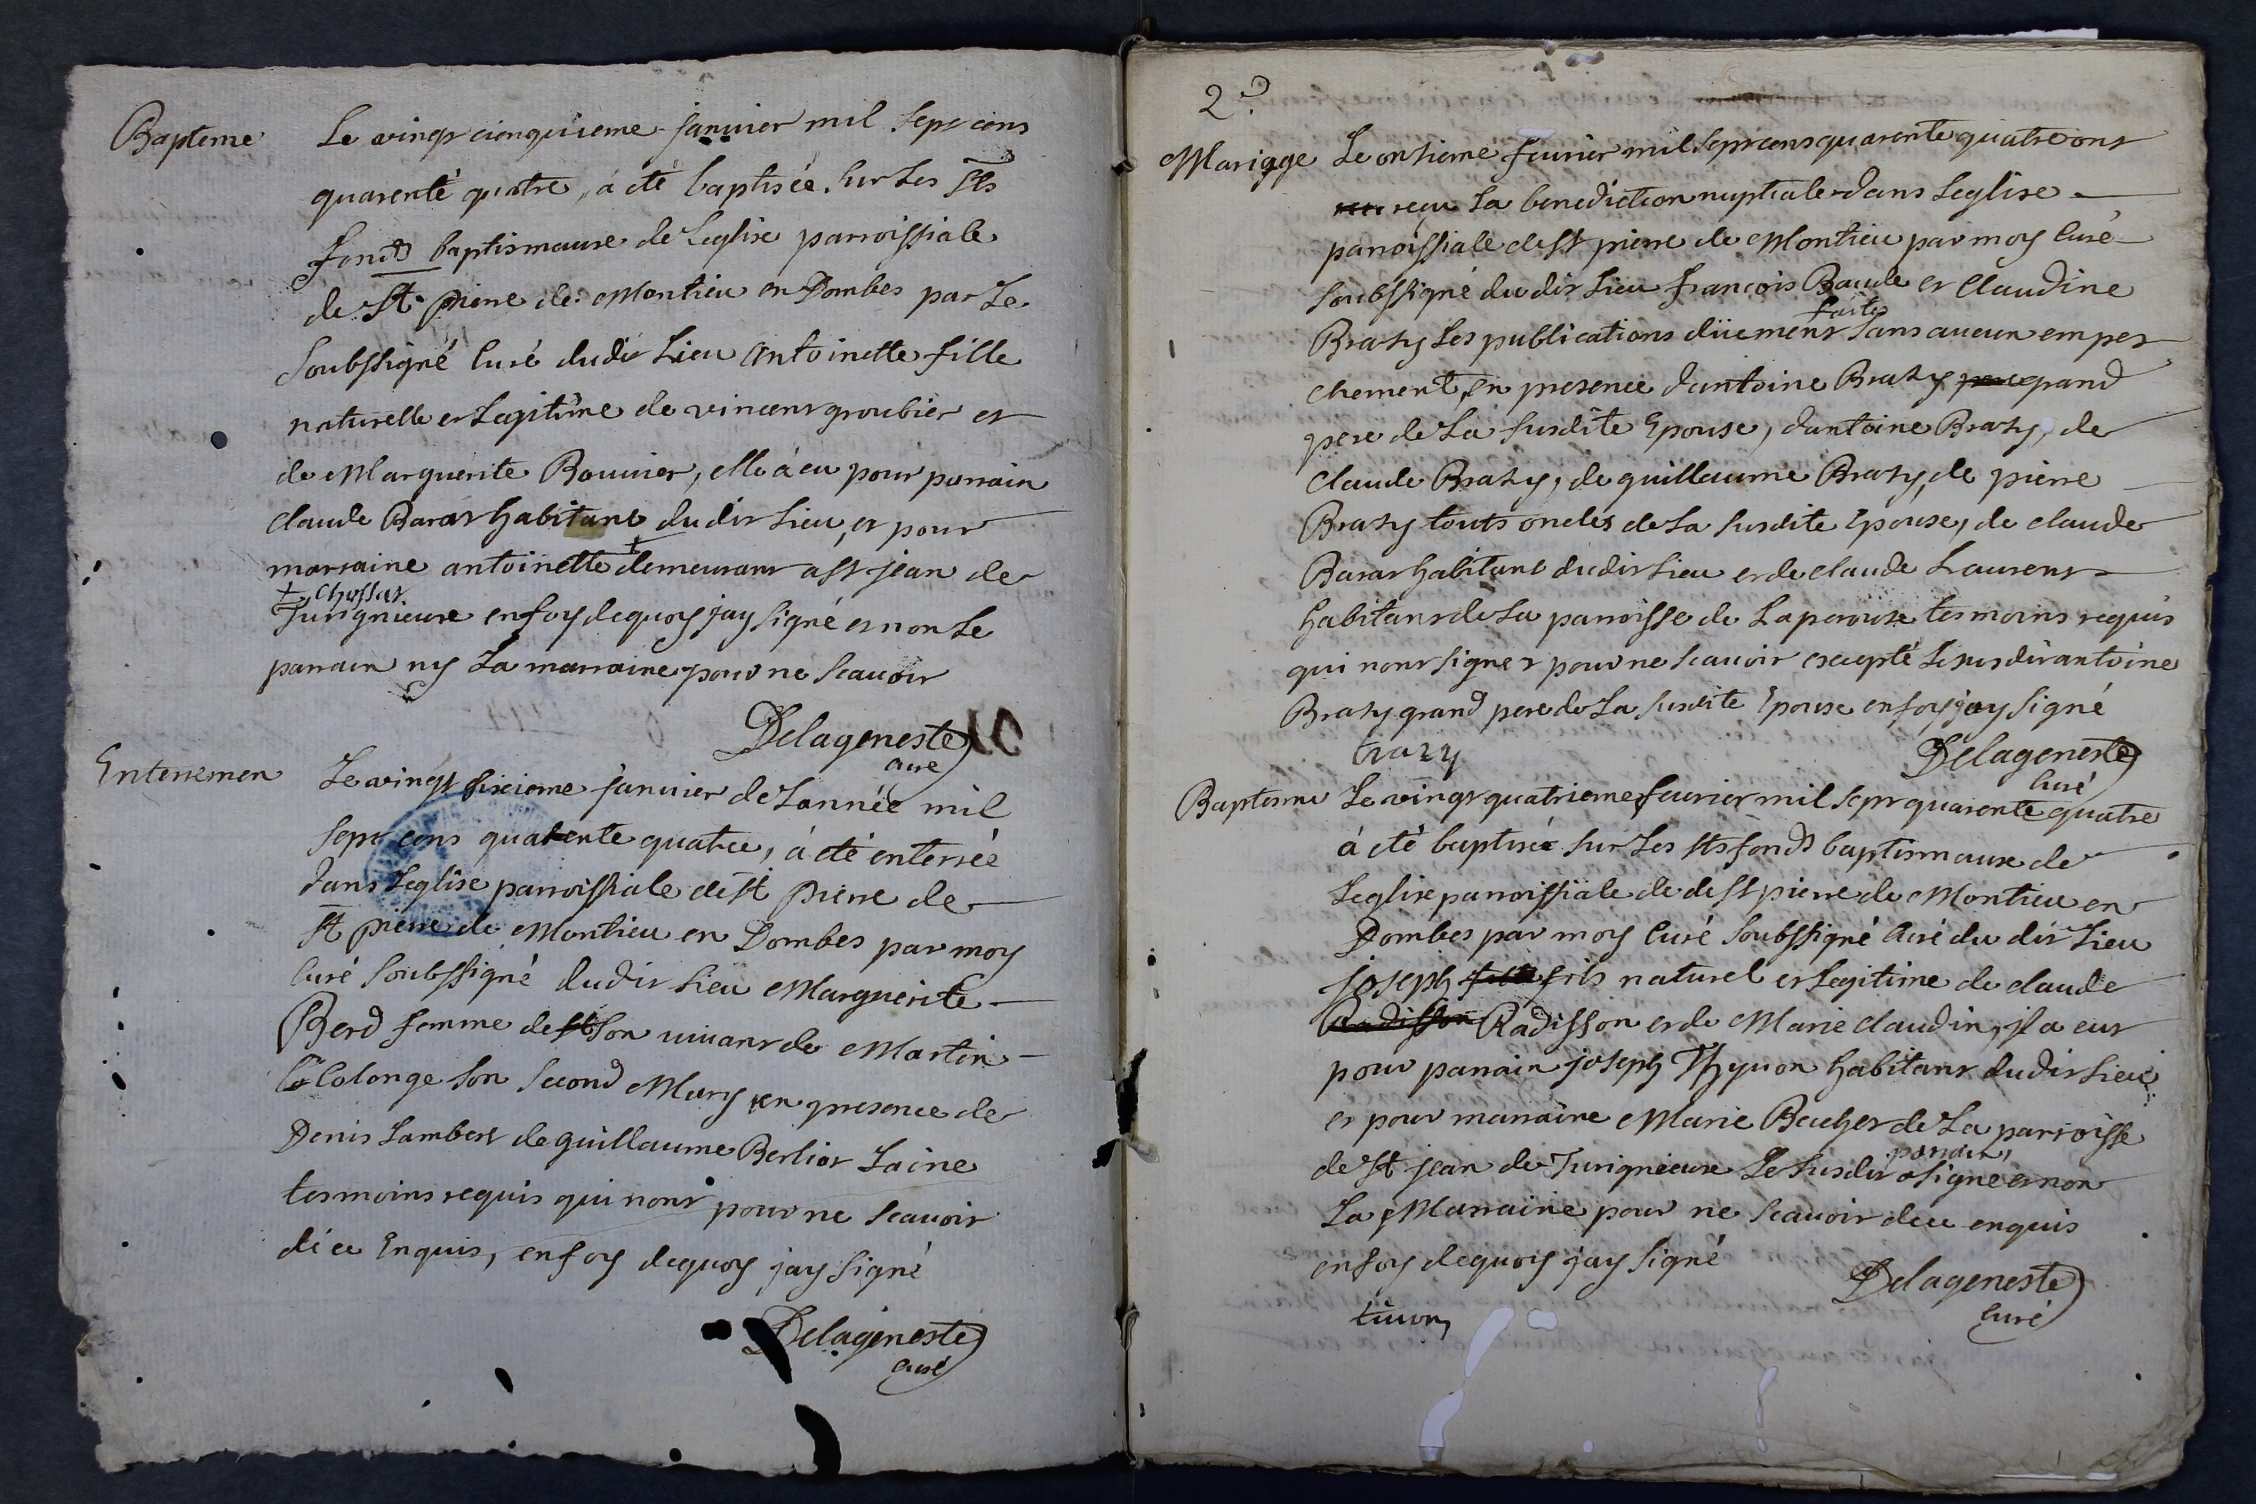 Bapteme
Le vingt cienquieme janvier mil sept cens
quarente quatre, a eté baptisée sur Les Sts
fonds baptismaux de Leglise parroissiale
de St pierre de Montieu en Dombes par Le
soubssigné Curé dudit Lieu Antoinette fille
naturelle et Legitime de vincent groubier et
de Marguerite Bouvier, elle a eu pour parrain
claude Barat habitant dudit Lieu, et pour
marraine antoinette + demeurant a St jean de
+ Chossat
Turignieux en foy dequoy jay signé et non Le
parrain ny La marraine pour ne scavoir
Delageneste
curé
Enterremen
Le vingt sixieme janvier de Lannée mil
sept cens quarente quatre, a eté enterrée
dans Leglise parroissiale de St pierre de
St pierre de Montieu en Dombes par moy
Curé soubssigné dudit Lieu Marguerite
Berd femme de son vivant de Martin
Colonge son second Mary en presence de
Denis Lambert de guillaume Berliot Laine
tesmoins requis qui nont pour ne scavoir
de ce Enquis, en foy dequoy jay signé
Delageneste
curé
2e
Mariage
Le onsieme fevrier mil sept cens quarente quatre ont
recu La benediction nuptiale dans Leglise
parroissiale de St pierre de Montieu par moy Curé
soubssigné dudit Lieu francois Baude et Claudine
Brazy Les publications düement faites sans aucun empes
chement, en presence dantoine Brazy grand
pere de La susdite Epouse, dantoine Brazy, de
Claude Brazy, de guillaume Brazy, de pierre
Brazy touts oncles de La susdite Epouse, de claude
Barat habitant dudit Lieu et de claude Laurent
habitant de La parroisse de Laperouse tesmoins requis
qui nont signer pour ne scavoir excepté Le susdit antoine
Brazy grand pere de La susdite Epouse en foy jay signé
brazy
Delageneste
Curé
Baptesme
Le vingt quatrieme fevrier mil sept quarente quatre
a eté baptisé sur Les Sts fonds baptismaux de
Leglise parroissiale de de St pierre de Montieu en
Dombes par moy Curé soubssigné Curé du dit Lieu
joseph fils naturel et Legitime de claude
Radisson Radisson et de Marie claudin, jl a eut
pour parrain joseph Thyvon habitant dudit Lieu
et pour marraine Marie Bacher de La parroisse
de St jean de Turignieux Le susdit parrain a signé et non
La Marraine pour ne scavoir de ce enquis
en foy dequoy jay signé
Delageneste
Curé
tivon